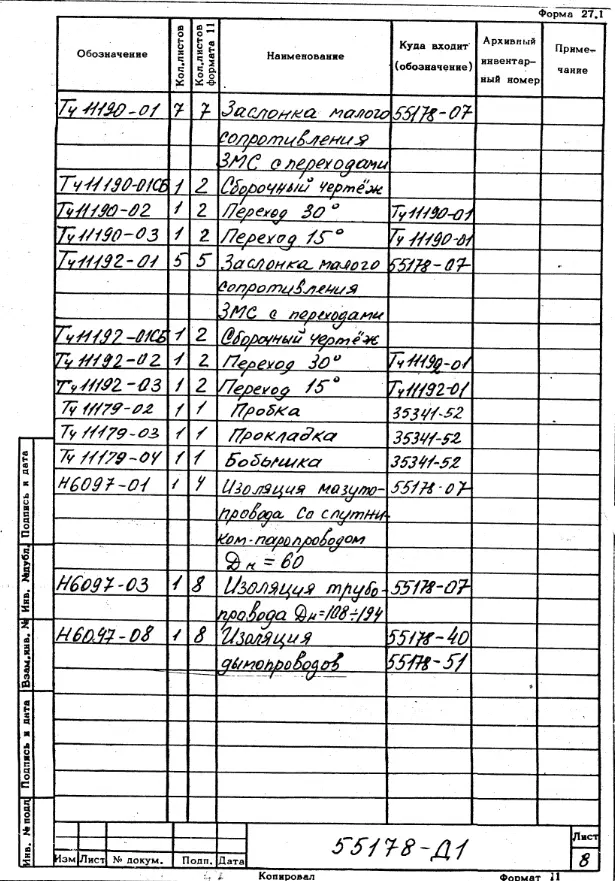 Форма 27.1
Обозначение Кол.листов Кол.листов формата 11 Наименование Куда входит (обозначение) Архивный инвентар- ный номер Приме- чание
Тч 11190-01 7 7 Заслонка малого 55178-07
сопротивления
ЗМС с переходами
Тч11190-01СБ 1 2 Сборочный чертёж
Тч11190-02 1 2 Переход 30° Тч11190-01
Тч11190-03 1 2 Переход 15° Тч 11190-01
Тч11192-01 5 5 Заслонка малого 55178-07
сопротивления
ЗМС с переходами
Тч11192-01СБ 1 2 Сборочный чертёж
Тч 11192-02 1 2 Переход 30° Тч11192-01
Тч11192-03 1 2 Переход 15° Тч11192-01
Тч 11179-02 1 1 Пробка 35341-52
Тч 11179-03 1 1 Прокладка 35341-52
Тч 11179-04 1 1 Бобышка 35341-52
Н6097-01 1 4 Изоляция мазуто- 55178-07
провода со спутни-
ком-паропроводом
Дн = 60
Н6097-03 1 8 Изоляция трубо- 55178-07
провода Дн=108÷194
Н6097-08 1 8 Изоляция 55178-40
дымопроводов 55178-51
Инв. № подл. Подпись и дата Взам.инв. № Инв. №дубл. Подпись и дата
55178-Д1
Лист
8
Изм Лист № докум. Подп. Дата
Копировал Формат 11